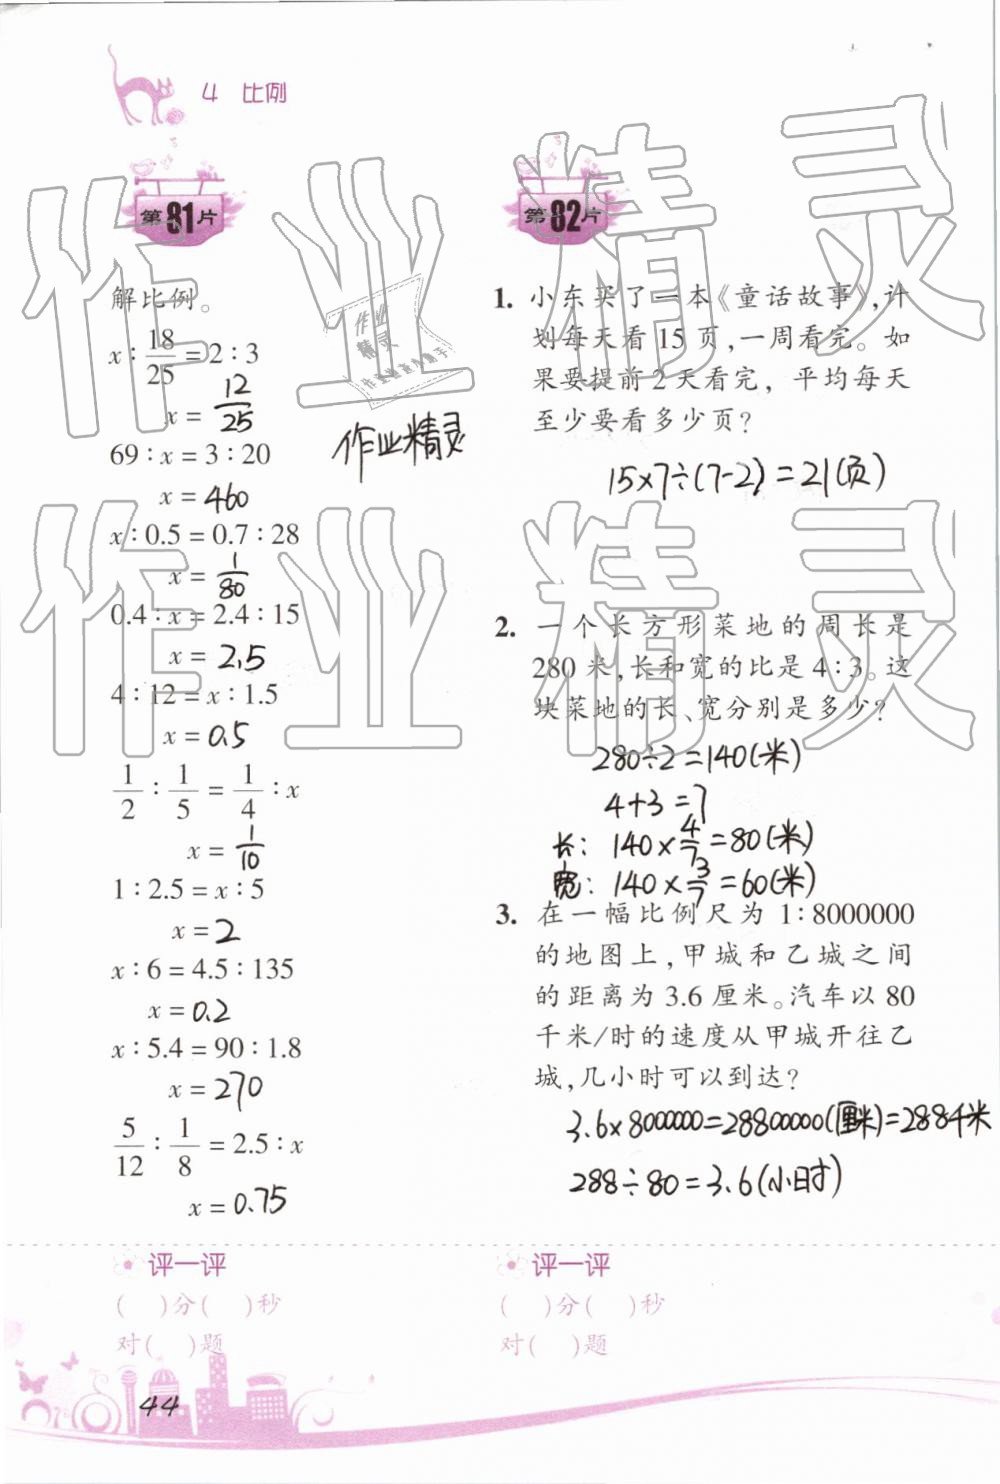 4 比例
第81片
解比例。
x : 18/25 = 2 : 3
x = 12/25
69 : x = 3 : 20
x = 460
x : 0.5 = 0.7 : 28
x = 1/80
0.4 : x = 2.4 : 15
x = 2.5
4 : 12 = x : 1.5
x = 0.5
1/2 : 1/5 = 1/4 : x
x = 1/10
1 : 2.5 = x : 5
x = 2
x : 6 = 4.5 : 135
x = 0.2
x : 5.4 = 90 : 1.8
x = 270
5/12 : 1/8 = 2.5 : x
x = 0.75
评一评
(  )分(  )秒
对(  )题
44
作业精灵
第82片
1. 小东买了一本《童话故事》,计
划每天看 15 页,一周看完。如
果要提前 2 天看完, 平均每天
至少要看多少页?
15×7÷(7-2)=21(页)
2. 一个长方形菜地的周长是
280 米,长和宽的比是 4:3。这
块菜地的长、宽分别是多少?
280÷2=140(米)
4+3=7
长: 140×4/7=80(米)
宽: 140×3/7=60(米)
3. 在一幅比例尺为 1:8000000
的地图上,甲城和乙城之间
的距离为 3.6 厘米。汽车以 80
千米/时的速度从甲城开往乙
城,几小时可以到达?
3.6×8000000=28800000(厘米)=288千米
288÷80=3.6(小时)
评一评
(  )分(  )秒
对(  )题
作业精灵
作业精灵
作业
精灵